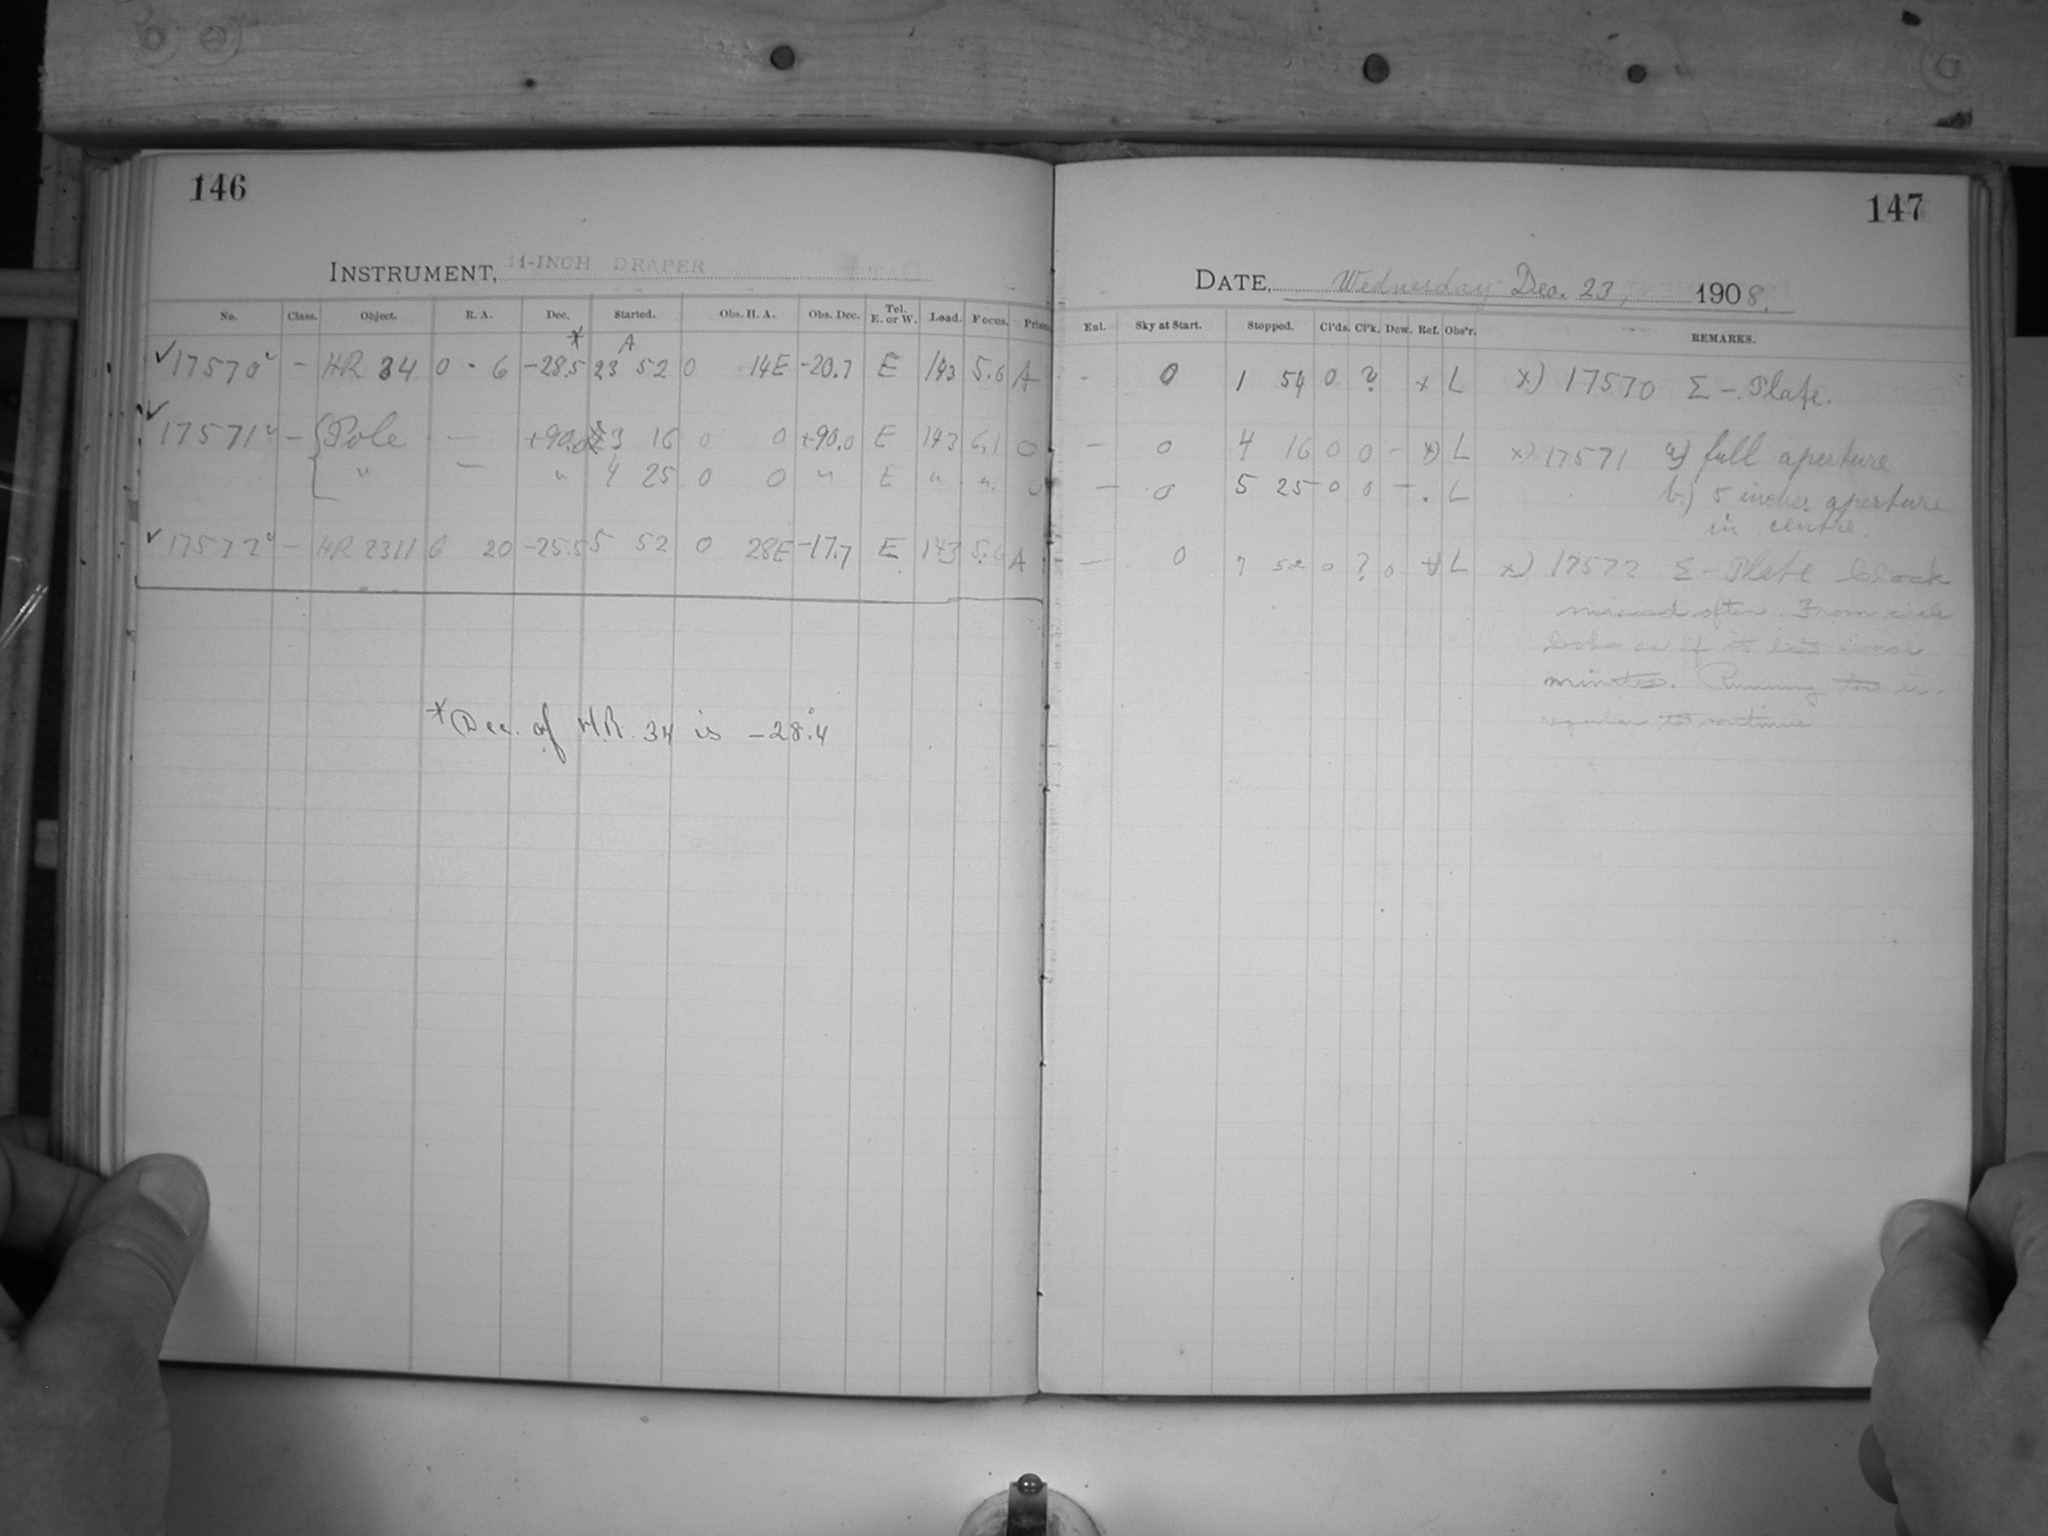 146
INSTRUMENT, 11-INCH DRAPER
No. Class. Object. R. A. Dec. Started. Obs. H. A. Obs. Dec. Tel. E. or W. Load. Focus. Prism
* A
✓ 17570 – HR 34 0 6 -28.5 23 52 0 14E -20.7 E 143 5.6 A
✓ 17571 – { Pole — +90.0 3 16 0 0 +90.0 E 143 6.1 0
" — " 4 25 0 0 " E " " 0
✓ 17572 – HR 2311 6 20 -25.5 5 52 0 28E -17.7 E 143 5.6 A
* Dec. of H.R. 34 is -28°.4
147
DATE, Wednesday Dec. 23, 1908.
Enl. Sky at Start. Stopped. Cl'ds. Cl'k. Dew. Ref. Obs'r. REMARKS.
- 0 1 54 0 ? x L x) 17570 Σ - Plate.
— 0 4 16 0 0 - x) L x) 17571 a) full aperture
— 0 5 25 0 0 - . L b.) 5 inches aperture
in centre.
— 0 7 52 0 ? 0 x) L x) 17572 Σ - Plate clock
missed often. From circle
looks as if it lost
minutes. Running too ir-
regular to continue